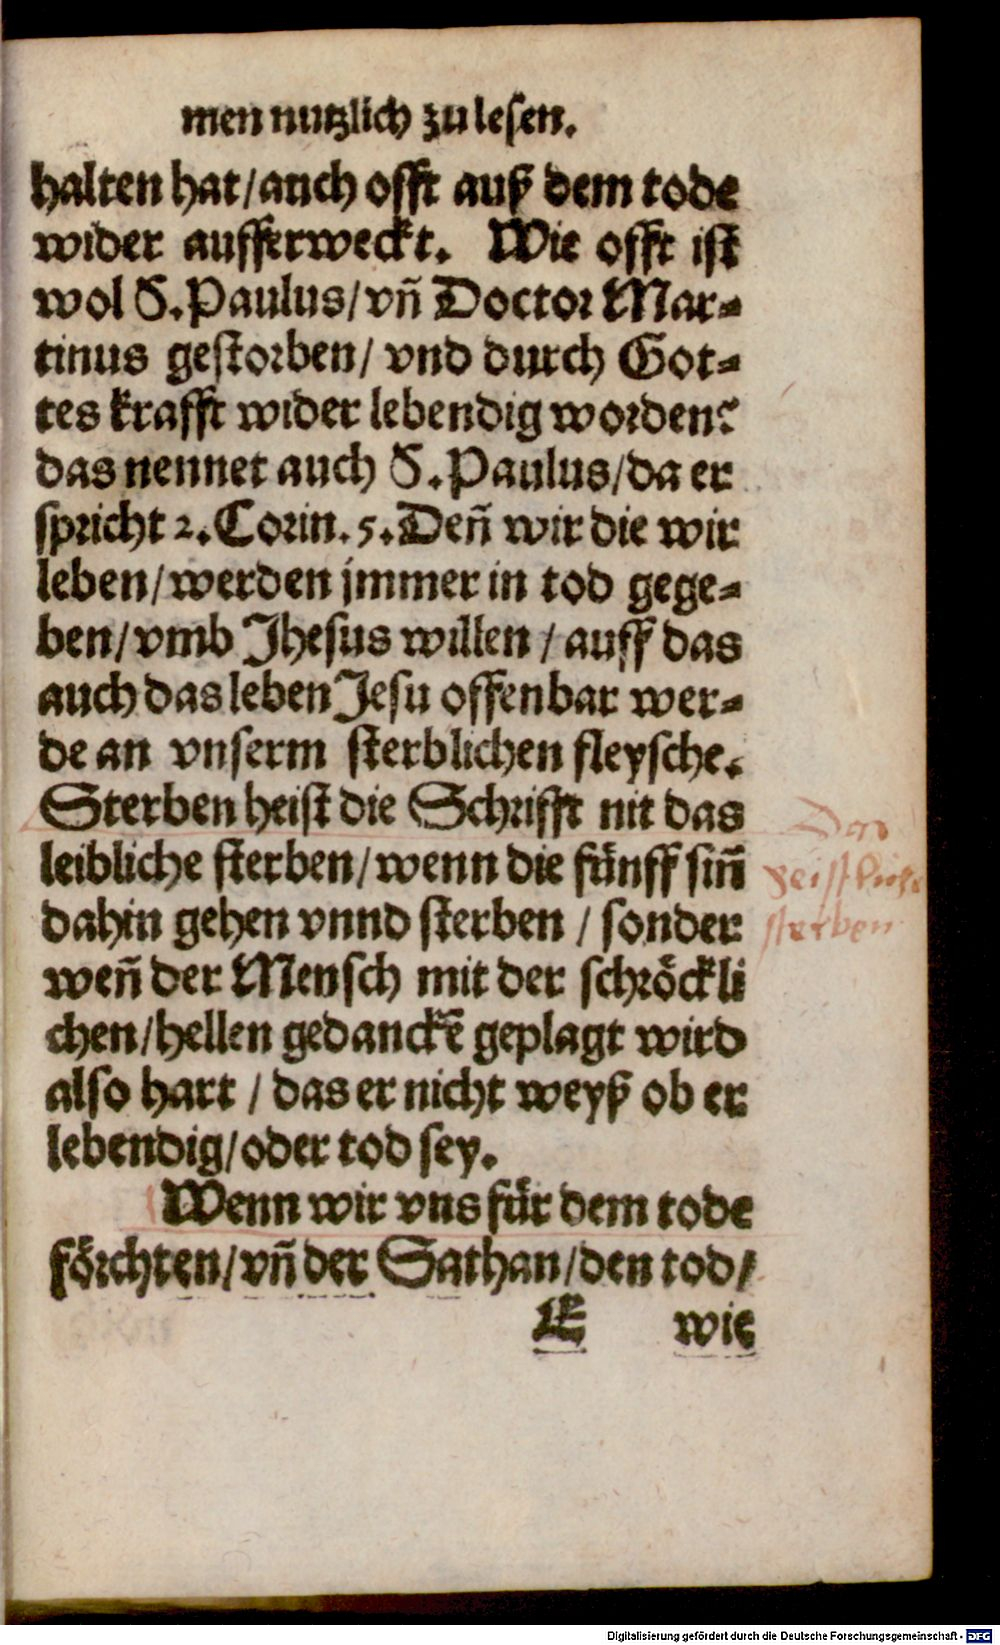 men nutzlich zu lesen.
halten hat/auch offt auß dem tode
wider aufferweckt. Wie offt ist
wol S.Paulus/vñ Doctor Mar-
tinus gestorben/ vnd durch Got-
tes krafft wider lebendig worden?
das nennet auch S.Paulus/da er
spricht 2.Corin.5.Deñ wir die wir
leben/werden jmmer in tod gege-
ben/vmb Jhesus willen/auff das
auch das leben Jesu offenbar wer-
de an vnserm sterblichen fleysche.
Sterben heist die Schrifft nit das
leibliche sterben/wenn die fünff siñ
dahin gehen vnnd sterben/sonder
weñ der Mensch mit der schröckli
chen/hellen gedanckē geplagt wird
also hart/das er nicht weyß ob er
lebendig/oder tod sey.
Das
geistliche
sterben
Wenn wir vns für dem tode
förchten/vñ der Sathan/den tod/
E wie
Digitalisierung gefördert durch die Deutsche Forschungsgemeinschaft - DFG